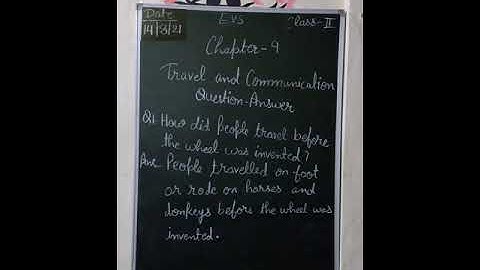 Date EVS Class-II
14/3/21
Chapter-9
Travel and Communication
Question-Answer
Q1 How did people travel before
the wheel was invented?
Ans People travelled on foot
or rode on horses and
donkeys before the wheel was
invented.